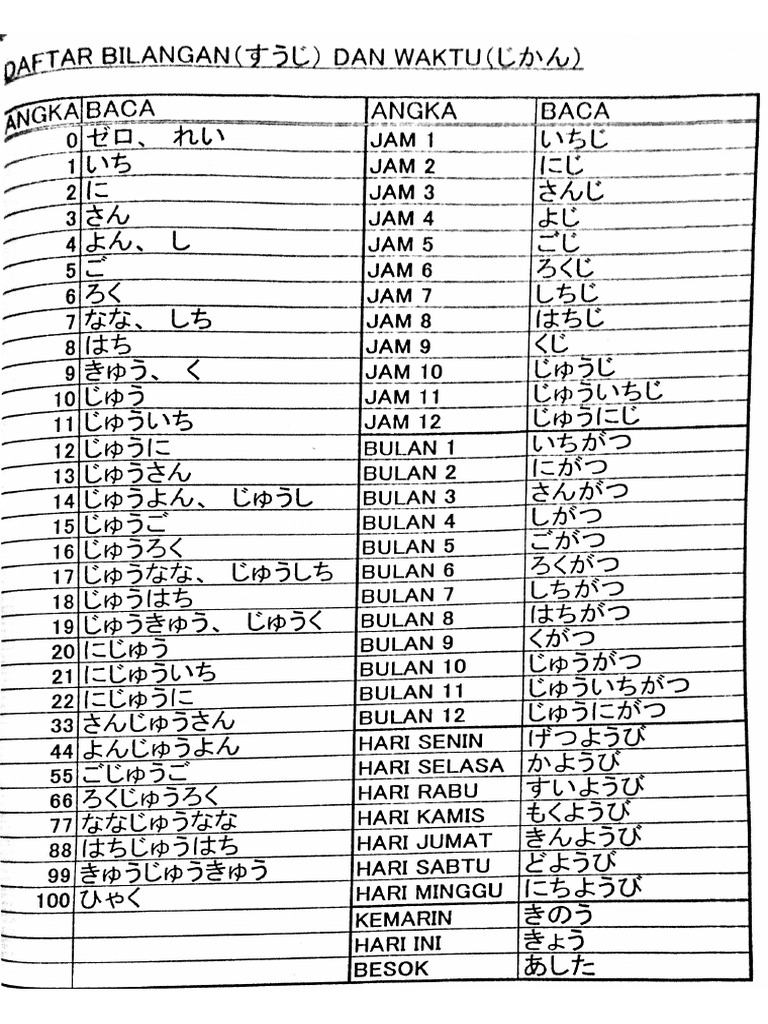 DAFTAR BILANGAN(すうじ) DAN WAKTU(じかん)
ANGKA BACA ANGKA BACA
0 ゼロ、 れい JAM 1 いちじ
1 いち JAM 2 にじ
2 に JAM 3 さんじ
3 さん JAM 4 よじ
4 よん、 し JAM 5 ごじ
5 ご JAM 6 ろくじ
6 ろく JAM 7 しちじ
7 なな、 しち JAM 8 はちじ
8 はち JAM 9 くじ
9 きゅう、 く JAM 10 じゅうじ
10 じゅう JAM 11 じゅういちじ
11 じゅういち JAM 12 じゅうにじ
12 じゅうに BULAN 1 いちがつ
13 じゅうさん BULAN 2 にがつ
14 じゅうよん、 じゅうし BULAN 3 さんがつ
15 じゅうご BULAN 4 しがつ
16 じゅうろく BULAN 5 ごがつ
17 じゅうなな、 じゅうしち BULAN 6 ろくがつ
18 じゅうはち BULAN 7 しちがつ
19 じゅうきゅう、 じゅうく BULAN 8 はちがつ
20 にじゅう BULAN 9 くがつ
21 にじゅういち BULAN 10 じゅうがつ
22 にじゅうに BULAN 11 じゅういちがつ
33 さんじゅうさん BULAN 12 じゅうにがつ
44 よんじゅうよん HARI SENIN げつようび
55 ごじゅうご HARI SELASA かようび
66 ろくじゅうろく HARI RABU すいようび
77 ななじゅうなな HARI KAMIS もくようび
88 はちじゅうはち HARI JUMAT きんようび
99 きゅうじゅうきゅう HARI SABTU どようび
100 ひゃく HARI MINGGU にちようび
KEMARIN きのう
HARI INI きょう
BESOK あした